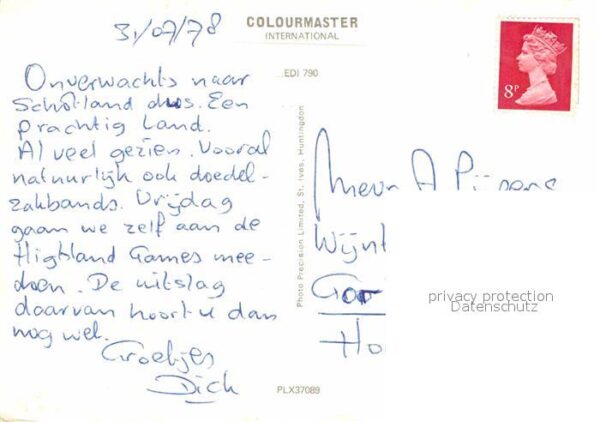 31/07/78
COLOURMASTER
INTERNATIONAL
EDI 790
8P
Onverwachts naar
Schotland dus. Een
prachtig land.
Al veel gezien. Vooral
natuurlijk ook doedel-
zakbands. Vrijdag
gaan we zelf aan de
Highland Games mee-
doen. De uitslag
daarvan hoort u dan
nog wel.
Groetjes
Dick
Photo Precision Limited, St. Ives, Huntingdon
Mevr A
Wijnt
Goi
Ho
privacy protection
Datenschutz
PLX37089